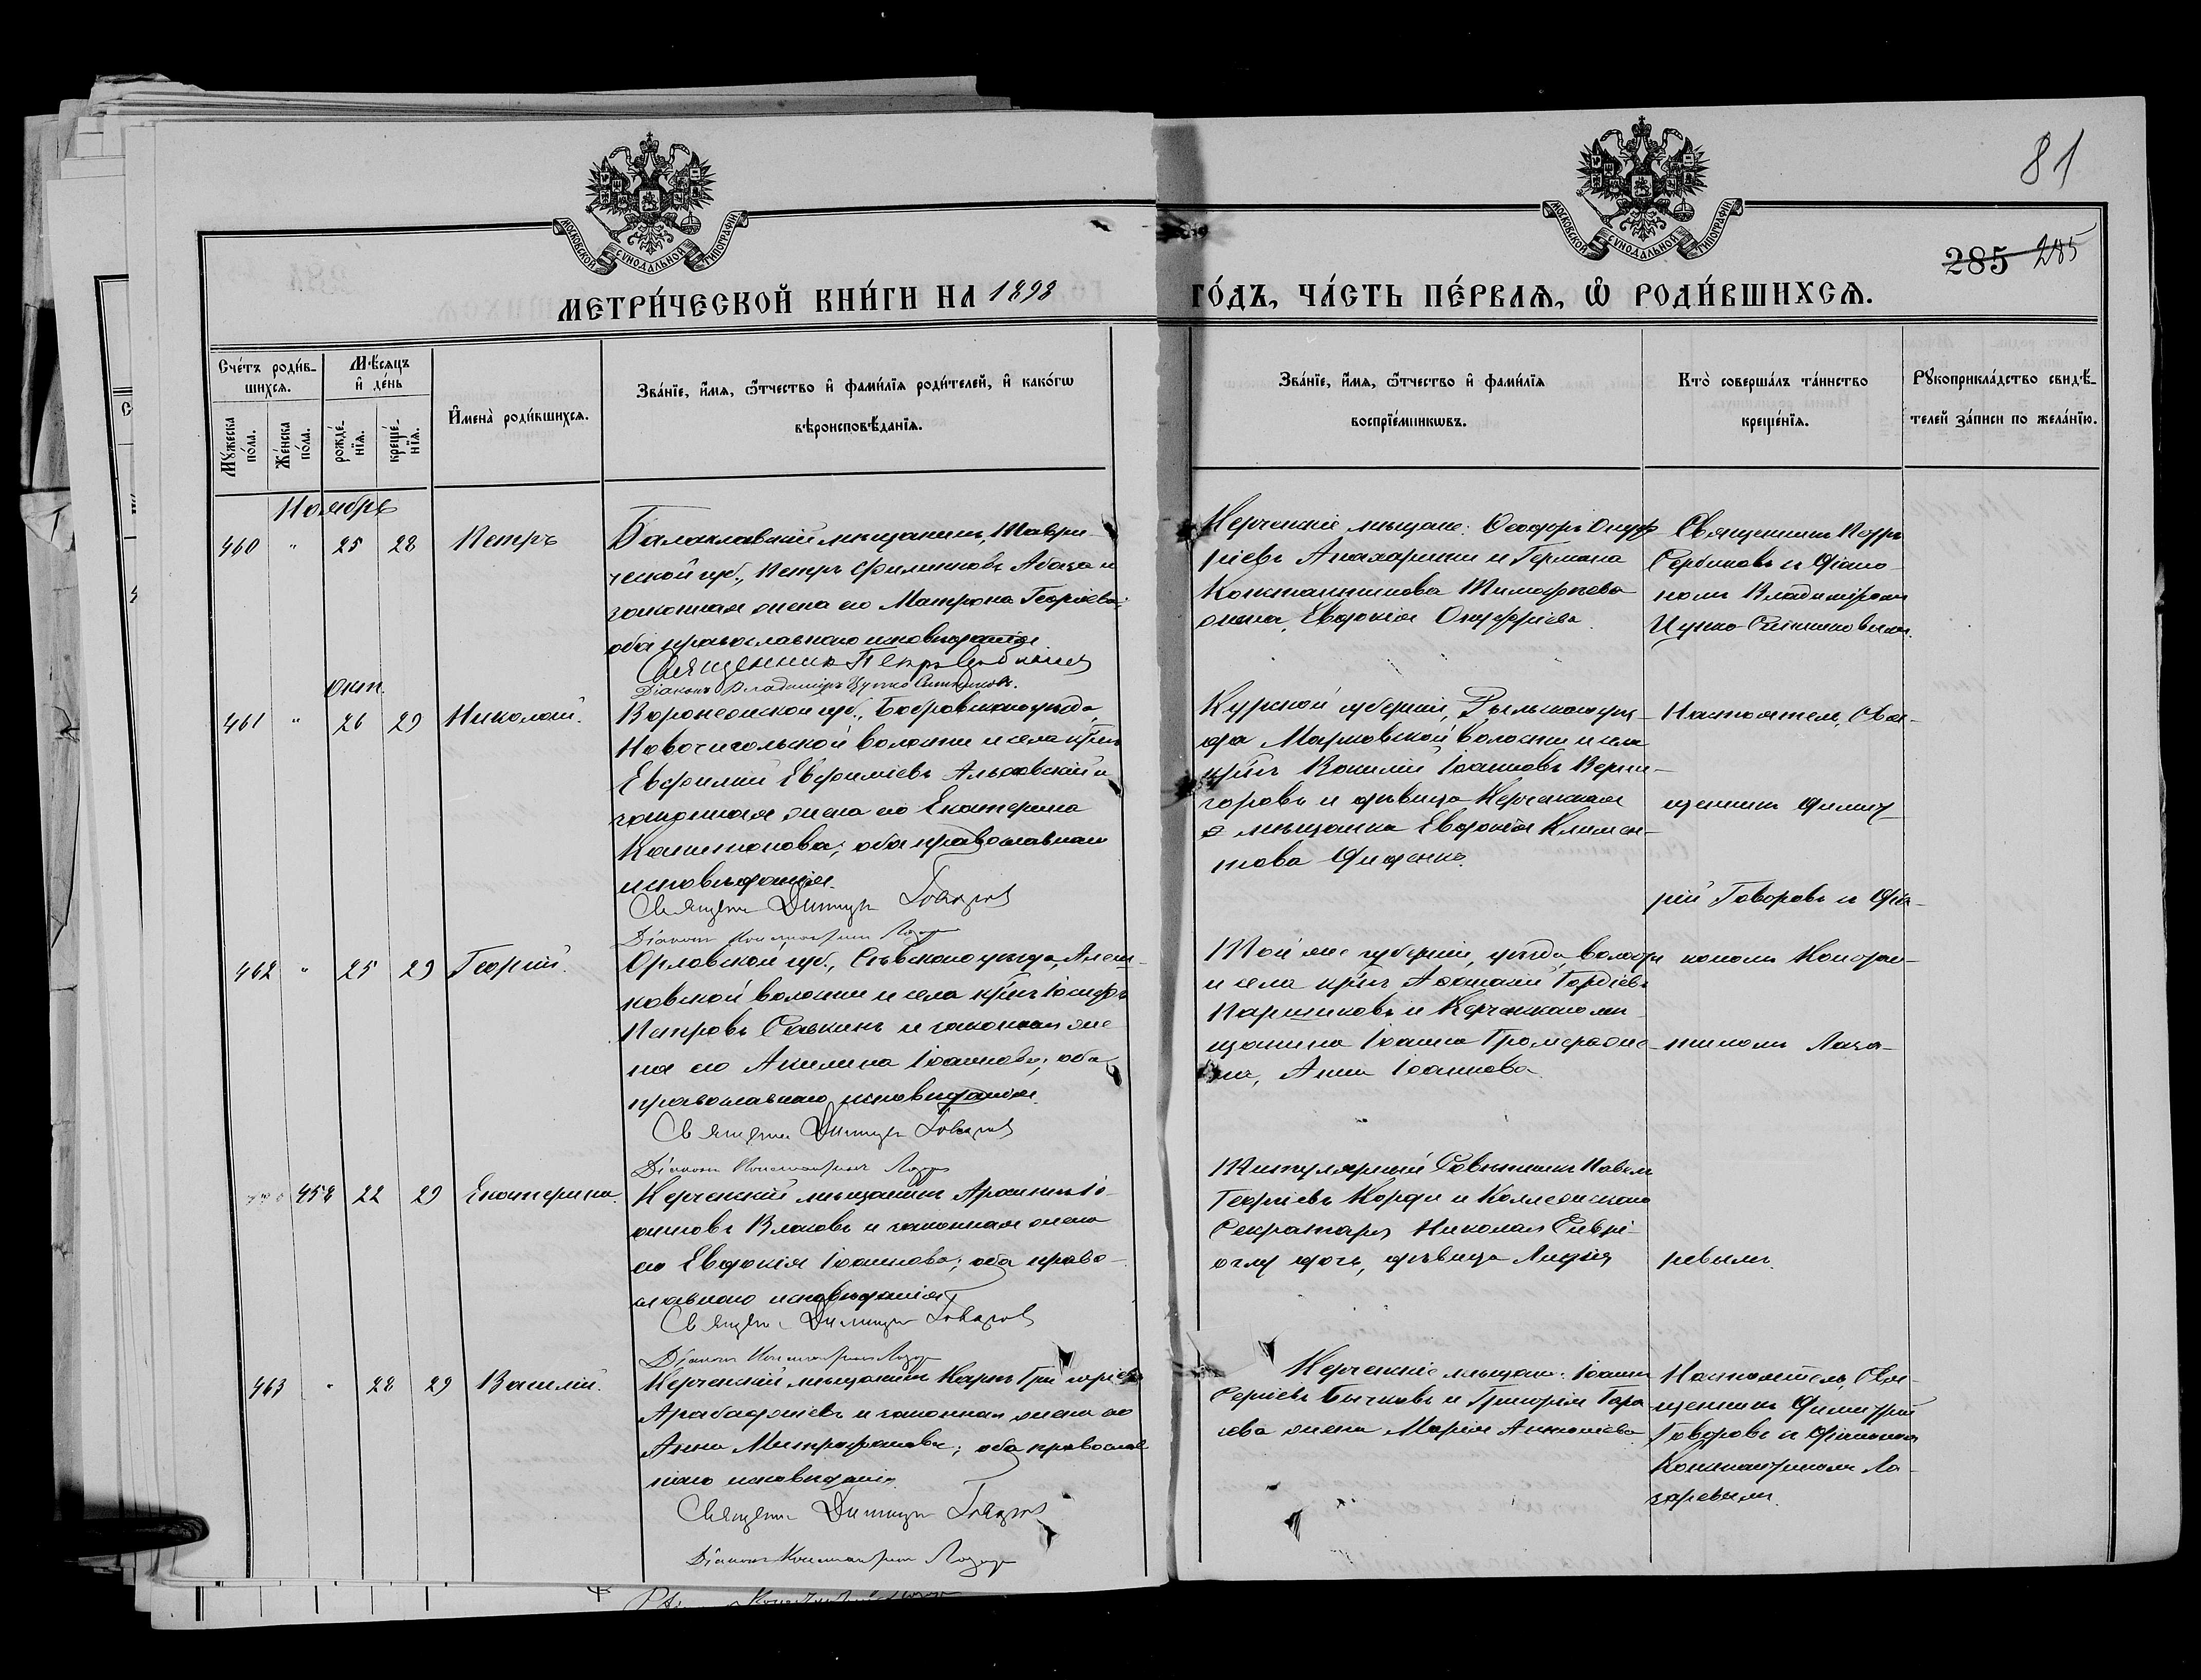 81
МОСКОВСКОЙ СѴНОДАЛЬНОЙ ТИПОГРАФІИ
МОСКОВСКОЙ СѴНОДАЛЬНОЙ ТИПОГРАФІИ
285 285
МЕТРИ́ЧЕСКОЙ КНИ́ГИ НА 1898 ГО́ДЪ, ЧА́СТЬ ПЕ́РВАѦ, Ѿ РОДИ́ВШИХСѦ.
Сче́тъ роди́в-
шихсѧ.
Мѣ́сѧцъ
и҆ де́нь
Мꙋ́жеска
по́ла.
Же́нска
по́ла.
рожде́-
нїѧ.
креще́-
нїѧ.
И҆мена̀ роди́вшихсѧ.
Зва́нїе, и҆́мѧ, ѻ҆́тчество и҆ фами́лїѧ роди́телей, и҆ како́гѡ
вѣроисповѣ́данїѧ.
Зва́нїе, и҆́мѧ, ѻ҆́тчество и҆ фами́лїѧ
воспрїе́мникѡвъ.
Кто̀ соверша́лъ та́инство
креще́нїѧ.
Рꙋкоприкла́дство свидѣ́-
телей за́писи по жела́нїю.
Ноябрь
460 " 25 28 Петръ
Балаклавскій мѣщанинъ, Таври-
ческой губ., Петръ Филипповъ Абаза и
законная жена его Матрона Георгіева;
оба православнаго исповѣданія
Священникъ Петръ Сербиновъ
Діаконъ Владиміръ Цупко-Ситниковъ.
Керченскіе мѣщане: Ѳеодоръ Онуф-
ріевъ и Германа
Константинова Тимофѣева
жена, Евдокія Онуфріева.
Священникъ Петръ
Сербиновъ и діако-
номъ Владиміромъ
Цупко-Ситниковымъ.
Окт.
461 " 26 29 Николай.
Воронежской губ., Бобровскаго уѣзда,
Новочигольской волости и села кр-нъ
Евфимій Евфиміевъ Альховскій и
законная жена его Екатерина
Капитонова; оба православнаго
исповѣданія.
Священ. Димитр. Говоровъ
Діаконъ Константинъ Лазар
Курской губерніи, Рыльскаго уѣз-
да Марковской волости и села
кр-нъ Василій Іоанновъ
и дѣвица Керченская
мѣщанка Евдокія Климен-
това
Настоятель, Свя-
щенникъ Димит-
рій Говоровъ и діа-
кономъ Констан-
тиномъ Лаза-
ревымъ.
462 " 25 29 Георгій.
Орловской губ., Сѣвскаго уѣзда,
волости и села кр-нъ Іосифъ
Петровъ Савкинъ и законная же-
на его Акилина Іоаннова; оба
православнаго исповѣданія.
Священ. Димитр. Говоровъ
Діаконъ Константинъ Лазар
Той же губерніи, уѣзда, волости
и села кр-нъ Гордіевъ
и Керченскаго мѣ-
щанина Іоанна же-
на, Анна Іоаннова.
458 22 29 Екатерина.
Керченскій мѣщанинъ Іо-
анновъ Власовъ и законная жена
его Евдокія Іоаннова; оба право-
славнаго исповѣданія.
Священ. Димитр. Говоровъ
Діаконъ Константинъ Лазар
Титулярный Совѣтникъ Павелъ
Георгіевъ и Коллежскаго
Секретаря Николая
дочь, дѣвица Лидія
463 " 28 29 Василій.
Керченскій мѣщанинъ Карпъ Григоріевъ
и законная жена его
Анна Митрофанова; оба православ-
наго исповѣданія.
Священ. Димитр. Говоровъ
Діаконъ Константинъ Лазар
Керченскіе мѣщане: Іоаннъ
Сергіевъ Бычковъ и Григорія
жена Марія
Настоятель, Свя-
щенникъ Димитрій
Говоровъ и діакономъ
Константиномъ Ла-
заревымъ.